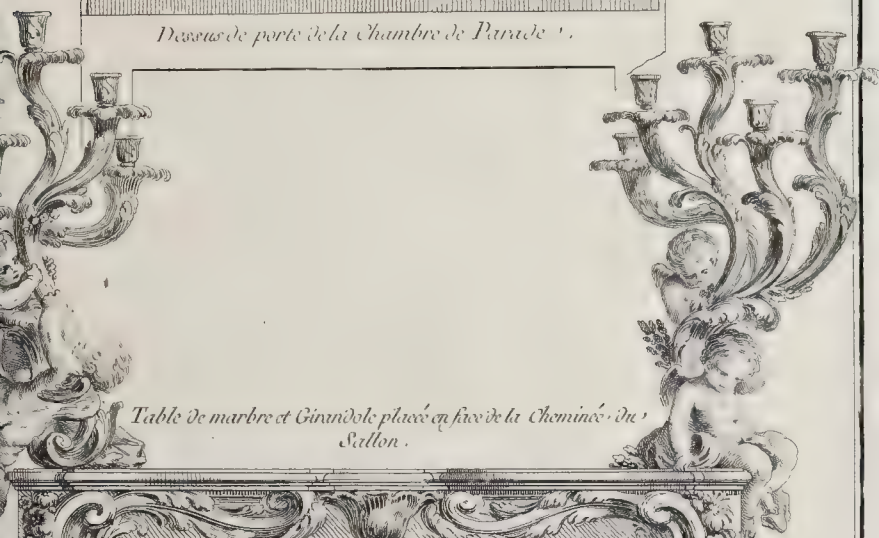 Dessus de porte de la Chambre de Parade.
Table de marbre et Girandole placée en face de la Cheminée du
Sallon.